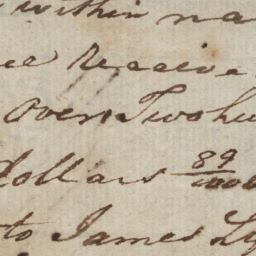 within na
receive
over Two hu
dollars 89/100
to James Ly